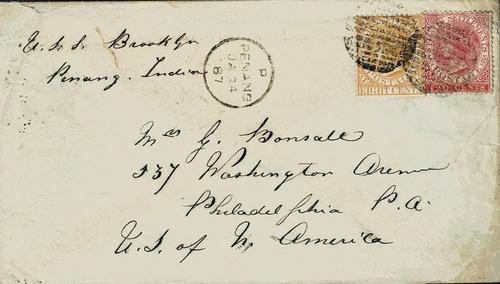 U.S.S. Brooklyn
Penang. India
P
PENANG
JA 24
87
POSTAGE
EIGHT CENTS
SETTLEMENTS
POSTAGE
TWO CENTS
Mrs G. Bonsall
537 Washington Avenue
Philadelphia P.A.
U.S. of N. America